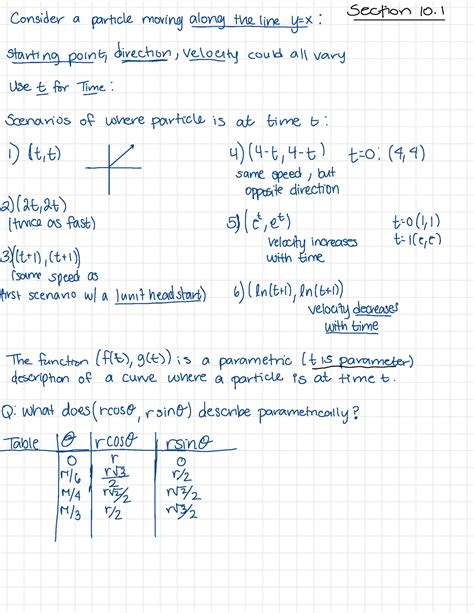 Section 10.1
Consider a particle moving along the line y=x:
starting point, direction, velocity could all vary
Use t for Time:
Scenarios of where particle is at time t:
1) (t,t)
2) (2t,2t)
(twice as fast)
3) ((t+1),(t+1))
(same speed as
first scenario w/ a 1unit headstart)
4) (4-t, 4-t) t=0: (4,4)
same speed, but
opposite direction
5) (e^t, e^t) t=0(1,1)
velocity increases t=1(e,e)
with time
6) (ln(t+1), ln(t+1))
velocity decreases
with time
The function (f(t), g(t)) is a parametric (t is parameter)
description of a curve where a particle is at time t.
Q: What does (rcosθ, rsinθ) describe parametrically?
Table θ rcosθ rsinθ
0 r 0
π/6 r√3/2 r/2
π/4 r√2/2 r√2/2
π/3 r/2 r√3/2